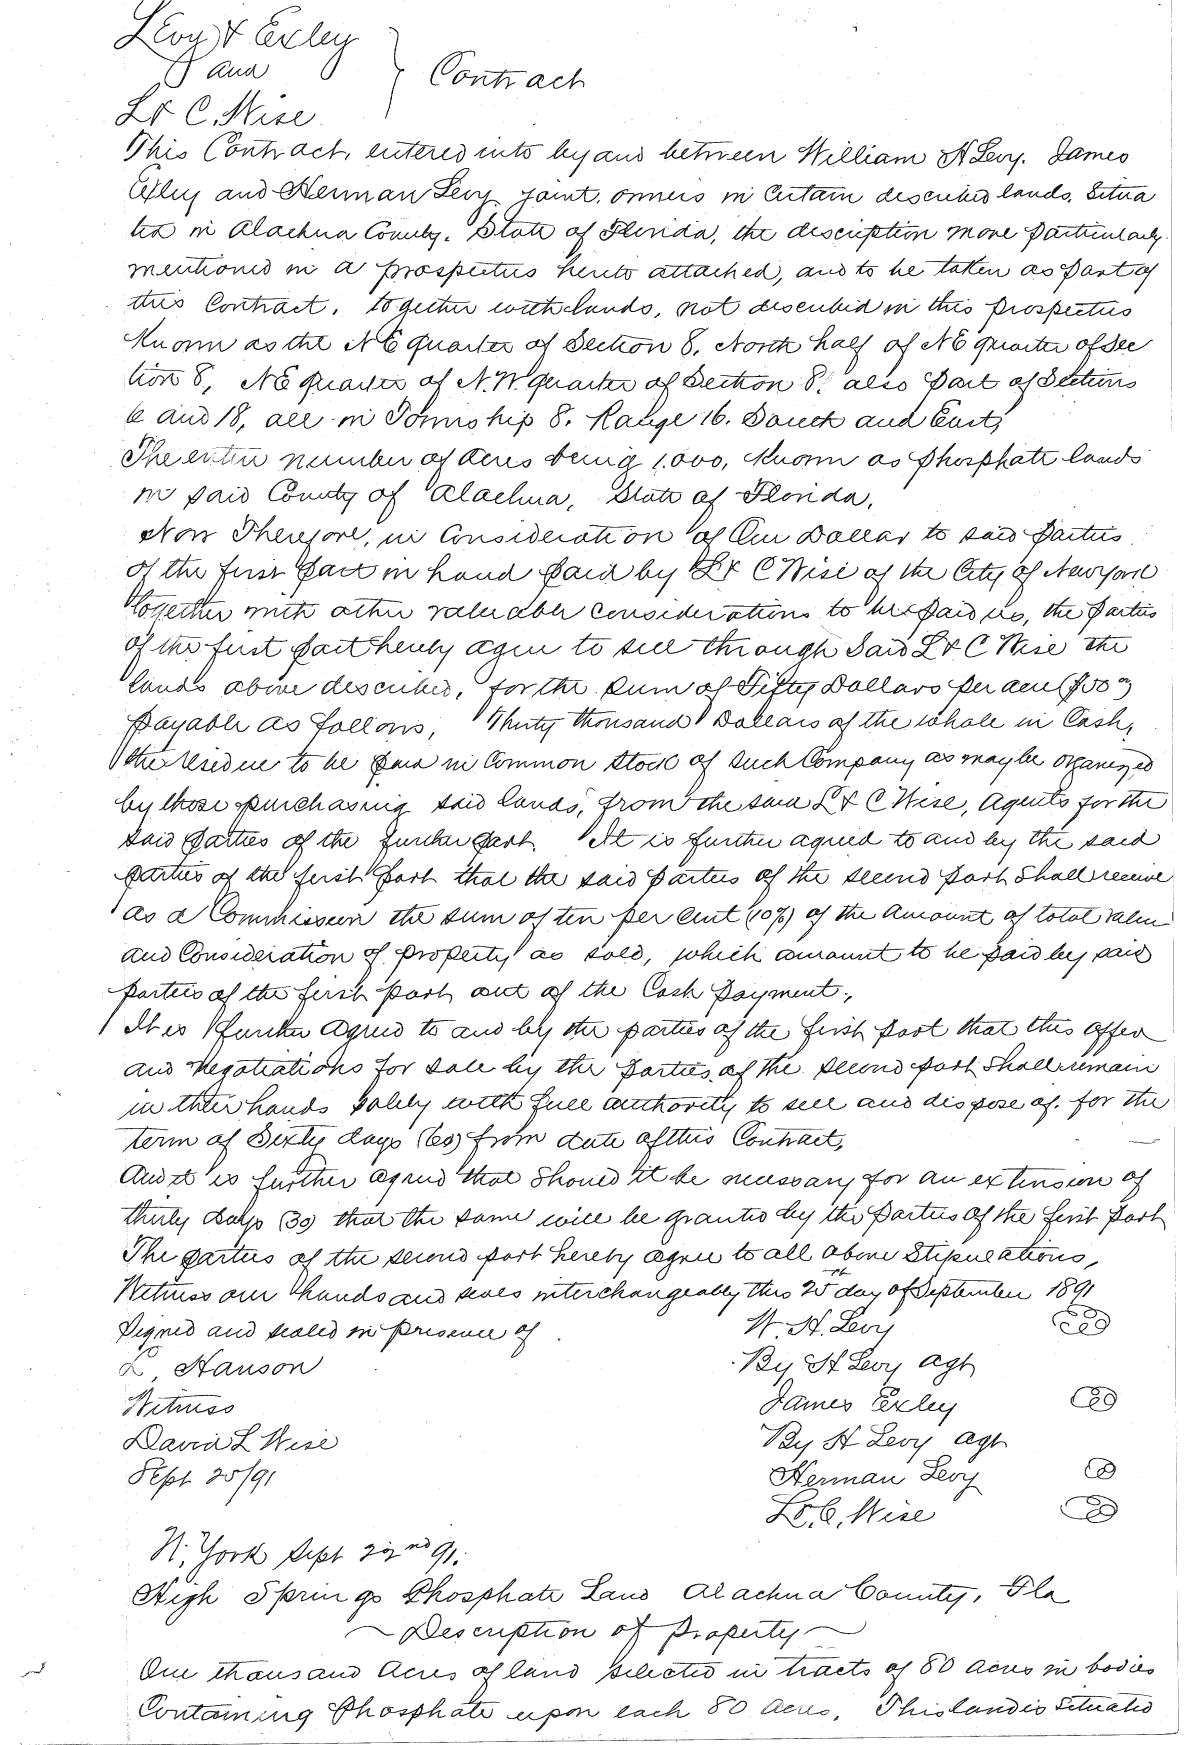 Levy & Exley
and
L & C. Wise
Contract
This Contract, entered into by and between William H Levy. James
Exley and Herman Levy joint, owners in Certain described lands, Situa
ted in Alachua County. State of Florida, the description more particularly
mentioned in a prospectus hereto attached, and to be taken as part of
this Contract, together with lands, not described in this prospectus
Known as the N E quarter of Section 8, North half of N E quarter of Sec
tion 8, N E quarter of N. W. quarter of Section 8, also part of Sections
6 and 18, all in Township 8. Range 16. South and East,
The entire number of Acres being 1.000, Known as phosphate lands
in said County of Alachua, State of Florida.
Now Therefore, in Consideration of One Dollar to said parties
of the first part in hand paid by L & C Wise of the City of New York
together with other valuable considerations to be paid us, the parties
of the first part hereby agree to sell through Said L & C Wise the
lands above described, for the sum of Fifty Dollars per acre ($50 00)
payable as follows, Thirty thousand Dollars of the whole in Cash,
the residue to be paid in Common Stock of such Company as may be organized
by those purchasing said lands, from the said L & C Wise, Agents for the
said parties of the further part. It is further agreed to and by the said
parties of the first part that the said parties of the second part Shall receive
as a Commission the sum of ten per cent (10%) of the Amount of total value
and Consideration of property as sold, which amount to be paid by said
parties of the first part out of the Cash payment.,
It is further agreed to and by the parties of the first part that this offer
and negotiations for sale by the parties of the second part Shall remain
in their hands Solely with full authority to sell and dispose of. for the
term of Sixty days (60) from date of this Contract,
And it is further agreed that Should it be necessary for an extension of
thirty days (30) that the same will be granted by the parties of the first part
The parties of the second part hereby agree to all above Stipulations,
Witness our hands and seals interchangeably this 25th day of September 1891
Signed and sealed in presence of
W. H. Levy
L, Hanson
By H Levy agt
Witness
James Exley
David L Wise
By H Levy agt
Sept 25/91
Herman Levy
L & C. Wise
N. York Sept 22nd 91.
High Springs Phosphate Land Alachua County, Fla
Description of property
One thousand Acres of land selected in tracts of 80 acres in bodies
Containing Phosphate upon each 80 acres. This land is Situated